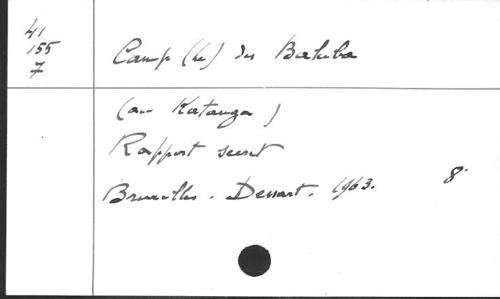 41
155
7
Camp (le) des Baluba
(au Katanga)
Rapport secret
Bruxelles. Dessart. 1963. 8°